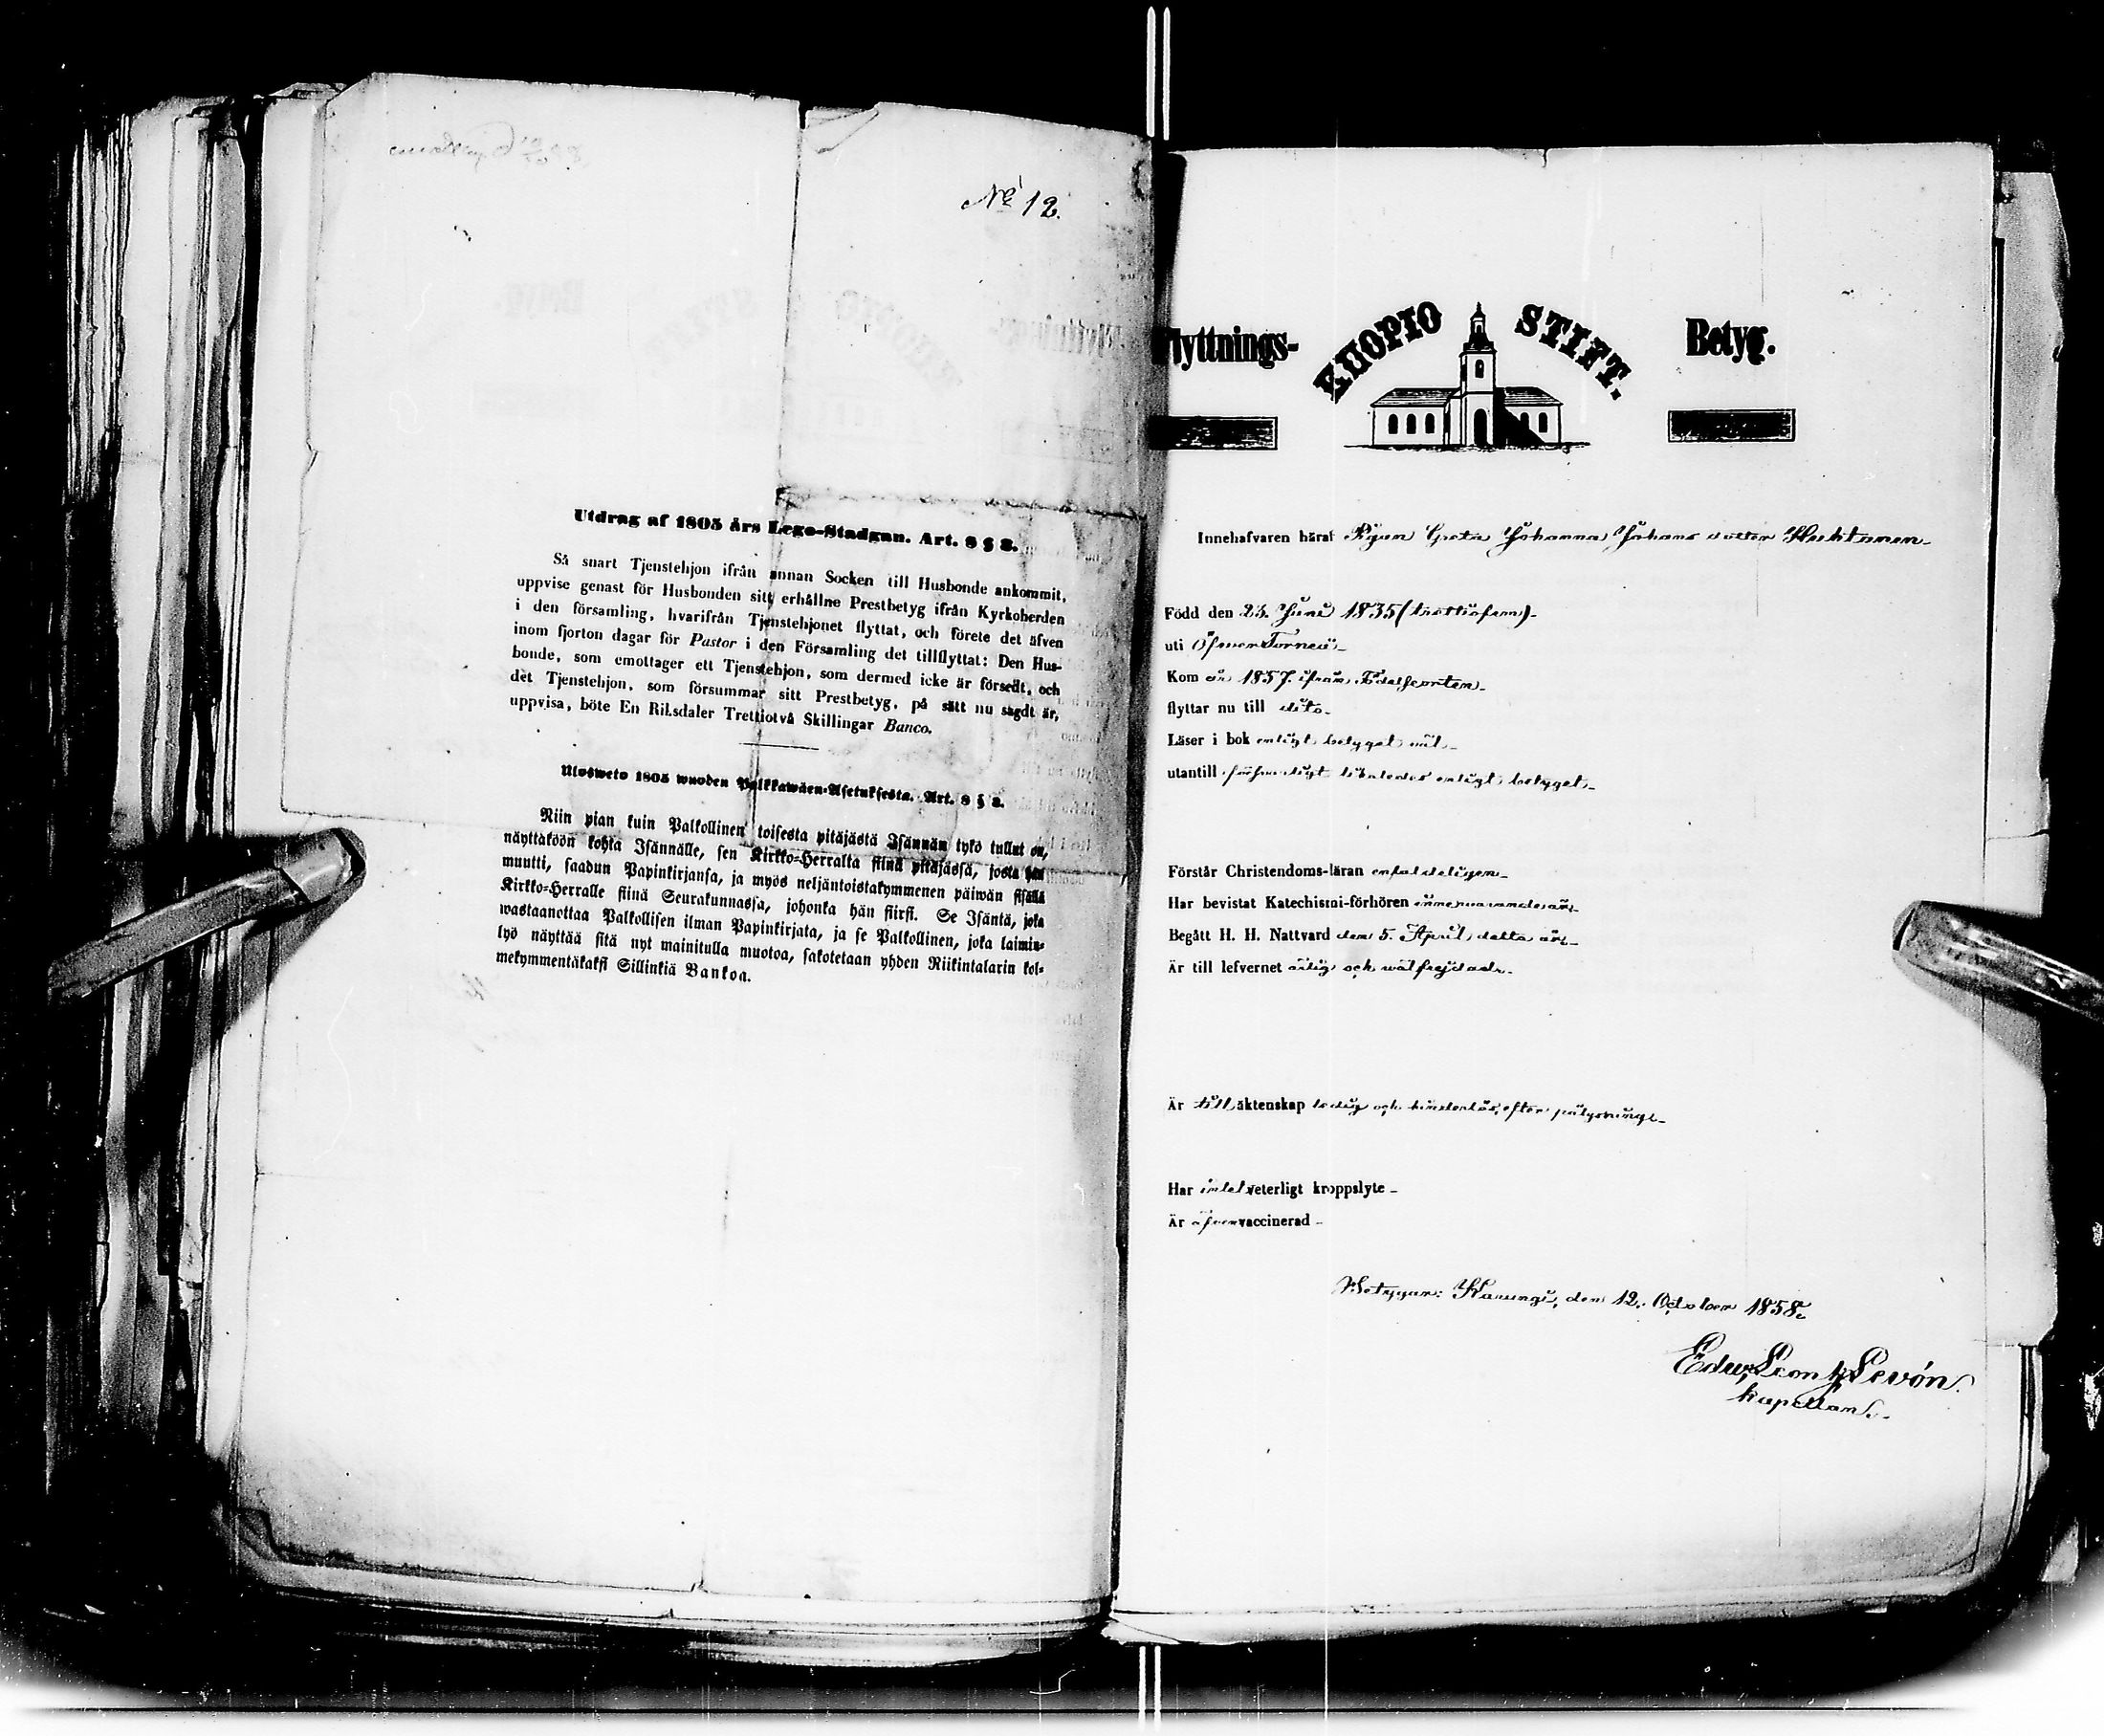 No 12.
Utdrag af 1805 års Lego-Stadgan. Art. 8 § 8.
Så snart Tjenstehjon ifrån annan Socken till Husbonde ankommit,
uppvise genast för Husbonden sitt erhållne Prestbetyg ifrån Kyrkoherden
i den församling, hvarifrån Tjenstehjonet flyttat, och förete det äfven
inom fjorton dagar för Pastor i den Församling det tillflyttat: Den Hus-
bonde, som emottager ett Tjenstehjon, som dermed icke är försedt, och
det Tjenstehjon, som försummar sitt Prestbetyg, på sätt nu sagdt är,
uppvisa, böte En Riksdaler Trettiotvå Skillingar Banco.
Ulosweto 1805 wuoden Palkkawäen-Asetuksesta. Art. 8 § 8.
Niin pian kuin Palkollinen toisesta pitäjästä Isännän tykö tullut on,
näyttäköön kohta Isännälle, sen Kirkko-Herralta siinä pitäjässä, josta hän
muutti, saadun Papinkirjansa, ja myös neljäntoistakymmenen päiwän sisällä
Kirkko-Herralle siinä Seurakunnassa, johonka hän siirsi. Se Isäntä, joka
wastaanottaa Palkollisen ilman Papinkirjata, ja se Palkollinen, joka laimin-
lyö näyttää sitä nyt mainitulla muotoa, sakotetaan yhden Riikintalarin kol-
mekymmentäkaksi Sillinkiä Bankoa.
Flyttnings- KUOPIO STIFT. Betyg.
Innehafvaren häraf Pigan Greta Johanna Johans dotter Huhtanen
Född den 23. Juni 1835 (trettiofem)
uti Öfver Torneå
Kom år 1857. ifrån Födelseorten
flyttar nu till dito
Läser i bok enligt betyget väl
utantill försvarligt således enligt betyget
Förstår Christendoms-läran enfaldeligen
Har bevistat Katechismi-förhören innevarande år
Begått H. H. Nattvard den 5. April detta år
Är till lefvernet ärlig och wälfrejdad
Är till äktenskap ledig och hinderlös, efter pålysning
Har intet veterligt kroppslyte
Är äfven vaccinerad
Betygar: Karungi, den 12. October 1858.
Edv. Leon Levón
kapellan.